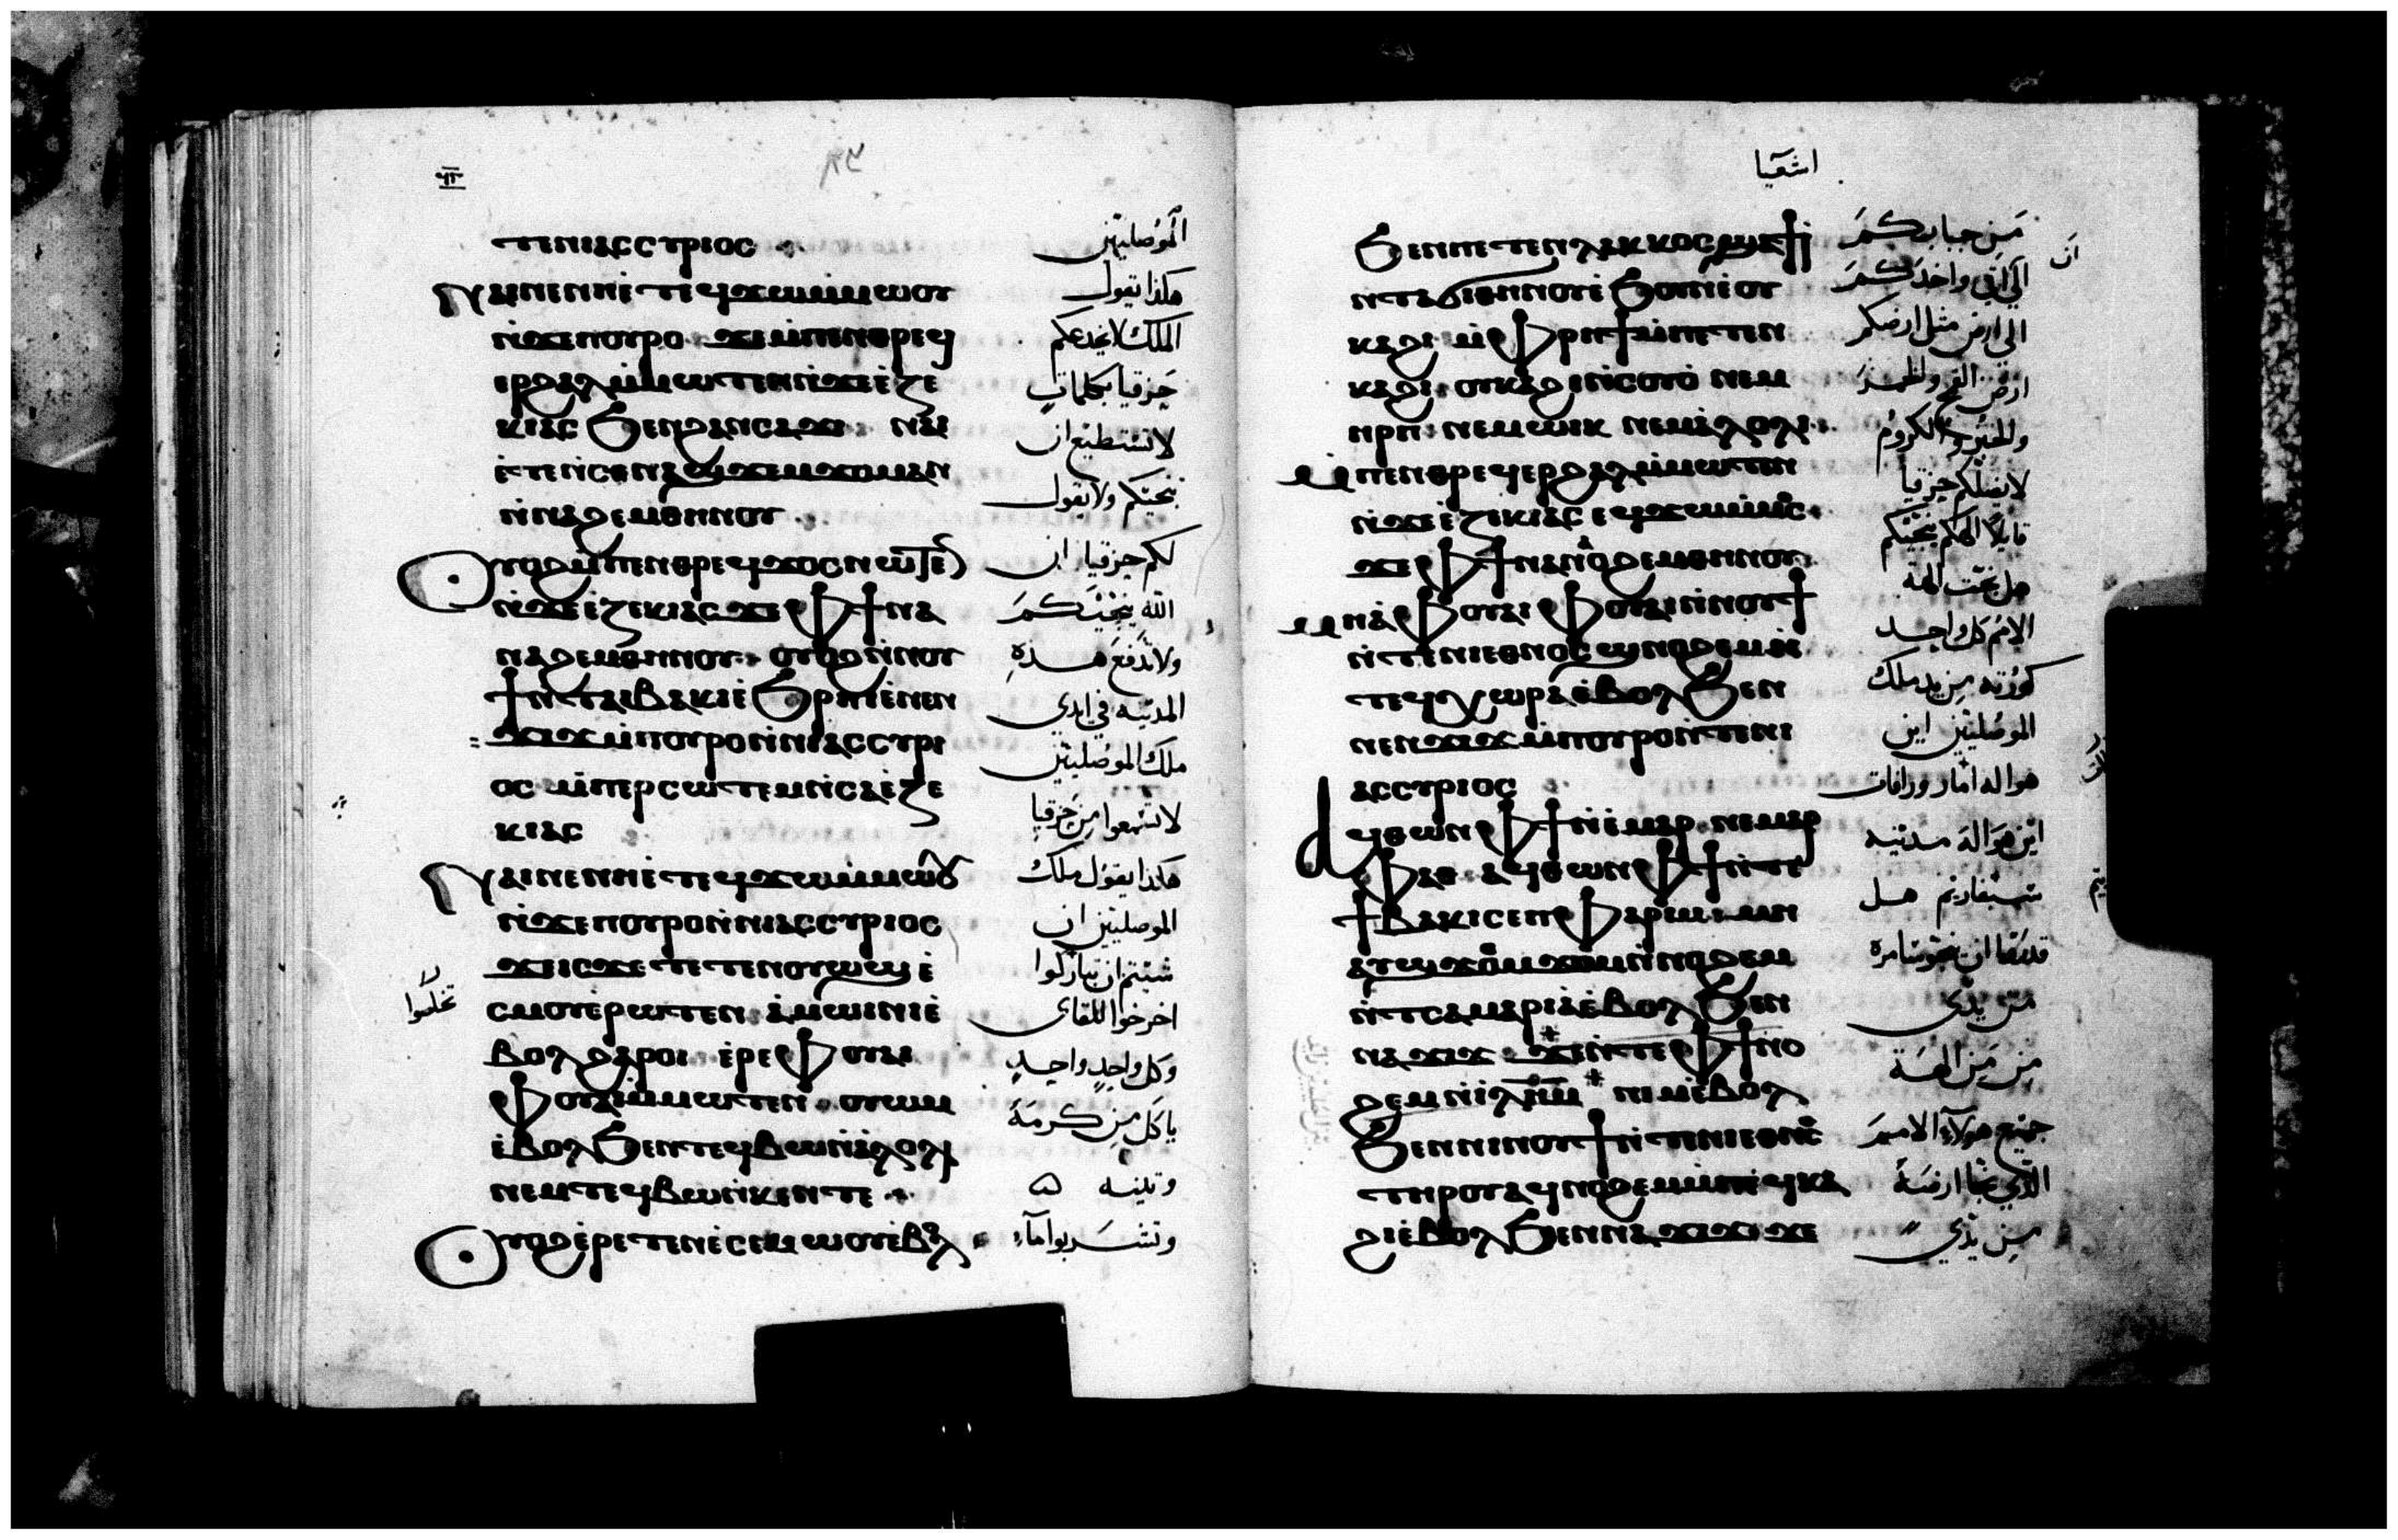 ⲧⲉⲛⲓⲁⲥⲥⲩⲣⲓⲟⲥ
ⲛⲁⲓ ⲛⲉ ⲛⲏ ⲉⲧⲉϥϫⲱ ⲙⲙⲱⲟⲩ
ⲛ̀ϫⲉ ⲡⲟⲩⲣⲟ ϫⲉ ⲙ̀ⲡⲉⲛⲑⲣⲉϥ
ⲉⲣϩⲁⲗ ⲙ̀ⲙⲱⲧⲉⲛ ⲛ̀ϫⲉ ⲉ̀ⲍⲉ
ⲕⲓⲁⲥ ϧⲉⲛ ϩⲁⲛⲥⲁϫⲓ ⲛⲁⲓ
ⲉ̀ⲧⲉ ⲛ̀ⲥⲉⲛⲁϣϫⲉⲙϫⲟⲙ ⲁⲛ
ⲛ̀ⲛⲁϩⲉⲙ ⲑⲏⲛⲟⲩ
ⲟⲩⲟϩ ⲙ̀ⲡⲉⲛⲑⲣⲉϥϫⲟⲥ ⲛⲱⲧⲉⲛ
ⲛ̀ϫⲉ ⲉ̀ⲍⲉⲕⲓⲁⲥ ϫⲉ ⲫϯ ⲛⲁ
ⲛⲁϩⲉⲙ ⲑⲏⲛⲟⲩ ⲟⲩⲟϩ ⲛ̀ⲛⲟⲩ
ϯ ⲛ̀ⲧⲁⲓⲃⲁⲕⲓ ⲉ̀ϧⲣⲏⲓ ⲉ̀ⲛⲉⲛ
ϫⲓϫ ⲙ̀ⲡⲟⲩⲣⲟ ⲛ̀ⲛⲓⲁⲥⲥⲩⲣⲓ
ⲟⲥ ⲙ̀ⲡⲉⲣⲥⲱⲧⲉⲙ ⲛ̀ⲥⲁ ⲉ̀ⲍⲉ
ⲕⲓⲁⲥ
ⲛⲁⲓ ⲛⲉ ⲛⲏ ⲉⲧⲉϥϫⲱ ⲙⲙⲱⲟⲩ
ⲛ̀ϫⲉ ⲡⲟⲩⲣⲟ ⲛ̀ⲛⲓⲁⲥⲥⲩⲣⲓⲟⲥ
ϫⲉ ⲓⲥϫⲉ ⲧⲉⲧⲉⲛⲟⲩⲱϣ ⲉ̀
ⲥⲙⲟⲩ ⲉ̀ⲣⲱⲧⲉⲛ ⲁ̀ⲙⲱⲓⲛⲓ ⲉ̀
ⲃⲟⲗ ϩⲁⲣⲟⲓ ⲉ̀ⲣⲉ ⲫⲟⲩⲁⲓ
ⲫⲟⲩⲁⲓ ⲙ̀ⲙⲱⲧⲉⲛ ⲟⲩⲱⲙ
ⲉ̀ⲃⲟⲗ ϧⲉⲛ ⲧⲉϥⲃⲱ ⲛ̀ⲁⲗⲟⲗⲓ
ⲛⲉⲙ ⲧⲉϥⲃⲱ ⲛ̀ⲕⲉⲛⲧⲉ
ⲟⲩⲟϩ ⲉ̀ⲣⲉⲧⲉⲛⲉ̀ⲥⲉ ⲙⲱⲟⲩ ⲉ̀ⲃⲟⲗ
الموصليين
هكذا يقول
الملك لا يخدعكم
حزقيا بكلمات
لا تستطيع ان
ننجيكم ولا يقول
لكم حزقيا ان
الله ينجيكم
ولا تدفع هذه
المدينه في ايدي
ملك الموصليين
لا تسمعوا من حزقيا
هكذا يقول ملك
الموصليين ان
شئتم ان تباركوا
اخرجوا للقاي
وكل واحد واحد
ياكل من كرمة
وتينه
وتشربوا ماء
اشعيا
ϧⲉⲛ ⲡⲉⲧⲉⲛⲗⲁⲕⲕⲟⲥ ϣⲁϯⲓ̀
ⲛ̀ⲧⲁϭⲓ ⲑⲏⲛⲟⲩ ⲉ̀ϧⲟⲩⲛ ⲉ̀ⲟⲩ
ⲕⲁϩⲓ ⲙ̀ⲫⲣⲏϯ ⲙ̀ⲡⲉⲧⲉⲛ
ⲕⲁϩⲓ ⲟⲩⲕⲁϩⲓ ⲛ̀ⲥⲟⲩⲟ̀ ⲛⲉⲙ
ⲏⲣⲡ ⲛⲉⲙ ⲱⲓⲕ ⲛⲉⲙ ⲁ̀ⲗⲟⲗⲓ
ⲙ̀ⲡⲉⲛⲑⲣⲉϥⲉⲣϩⲁⲗ ⲙ̀ⲙⲱⲧⲉⲛ
ⲛ̀ϫⲉ ⲉ̀ⲍⲉⲕⲓⲁⲥ ⲉϥϫⲱ ⲙ̀ⲙⲟⲥ
ϫⲉ ⲫϯ ⲛⲁⲛⲟϩⲉⲙ ⲑⲏⲛⲟⲩ
ⲙⲏ ⲁ̀ ⲫⲟⲩⲁⲓ ⲫⲟⲩⲁⲓ ⲛ̀ⲛⲟⲩϯ
ⲛ̀ⲧⲉ ⲛⲓⲉⲑⲛⲟⲥ ϣⲛⲟϩⲉⲙ ⲛ̀
ⲧⲉϥⲭⲱⲣⲁ ⲉ̀ⲃⲟⲗ ϧⲉⲛ
ⲛⲉⲛϫⲓϫ ⲙ̀ⲡⲟⲩⲣⲟ ⲛ̀ⲧⲉ ⲛⲓ
ⲁⲥⲥⲩⲣⲓⲟⲥ
ⲁϥⲑⲱⲛ ⲫϯ ⲛ̀ⲉ̀ⲙⲁⲣ ⲛⲉⲙ ⲁⲣ
ⲫⲁⲑ ⲁϥⲑⲱⲛ ⲫϯ ⲛ̀ⲧⲉ
ϯⲃⲁⲕⲓ ⲥⲉⲡⲫⲁⲣⲓⲙ ⲙⲏ
ⲁⲩϣϫⲉⲙϫⲟⲙ ⲛ̀ⲛⲟϩⲉⲙ
ⲛ̀ⲧⲥⲁⲙⲁⲣⲓⲁ ⲉ̀ⲃⲟⲗ ϧⲉⲛ
ⲛⲁϫⲓϫ ϫⲉ ⲛ̀ⲧⲉ ⲫϯ ⲛⲟ
ϩⲉⲙ ⲛ̀ⲓⲗⲏⲙ ⲛⲓⲙ ⲉ̀ⲃⲟⲗ
ϧⲉⲛ ⲛⲓⲛⲟⲩϯ ⲛ̀ⲧⲉ ⲛⲓⲉⲑⲛⲟⲥ
ⲧⲏⲣⲟⲩ ⲁϥⲛⲟϩⲉⲙ ⲙ̀ⲡⲉϥⲕⲁ
ϩⲓ ⲉ̀ⲃⲟⲗ ϧⲉⲛ ⲛⲁϫⲓϫ ϫⲉ
من جبابكم
الى اتي واخذكم
الى ارض مثل ارضكم
ارض القمح والخمر
والخبز والكروم
لا يضلكم حزقيا
قايلا الهكم ينجيكم
هل نجت الهة
الامم كل واحد
كورته من يد ملك
الموصليين اين
هو اله امار ورافات
اين هو اله مدينه
سبفاريم هل
من يدي
من من الهة
جميع هولاء الامم
الذي نجا ارضه
من يدي